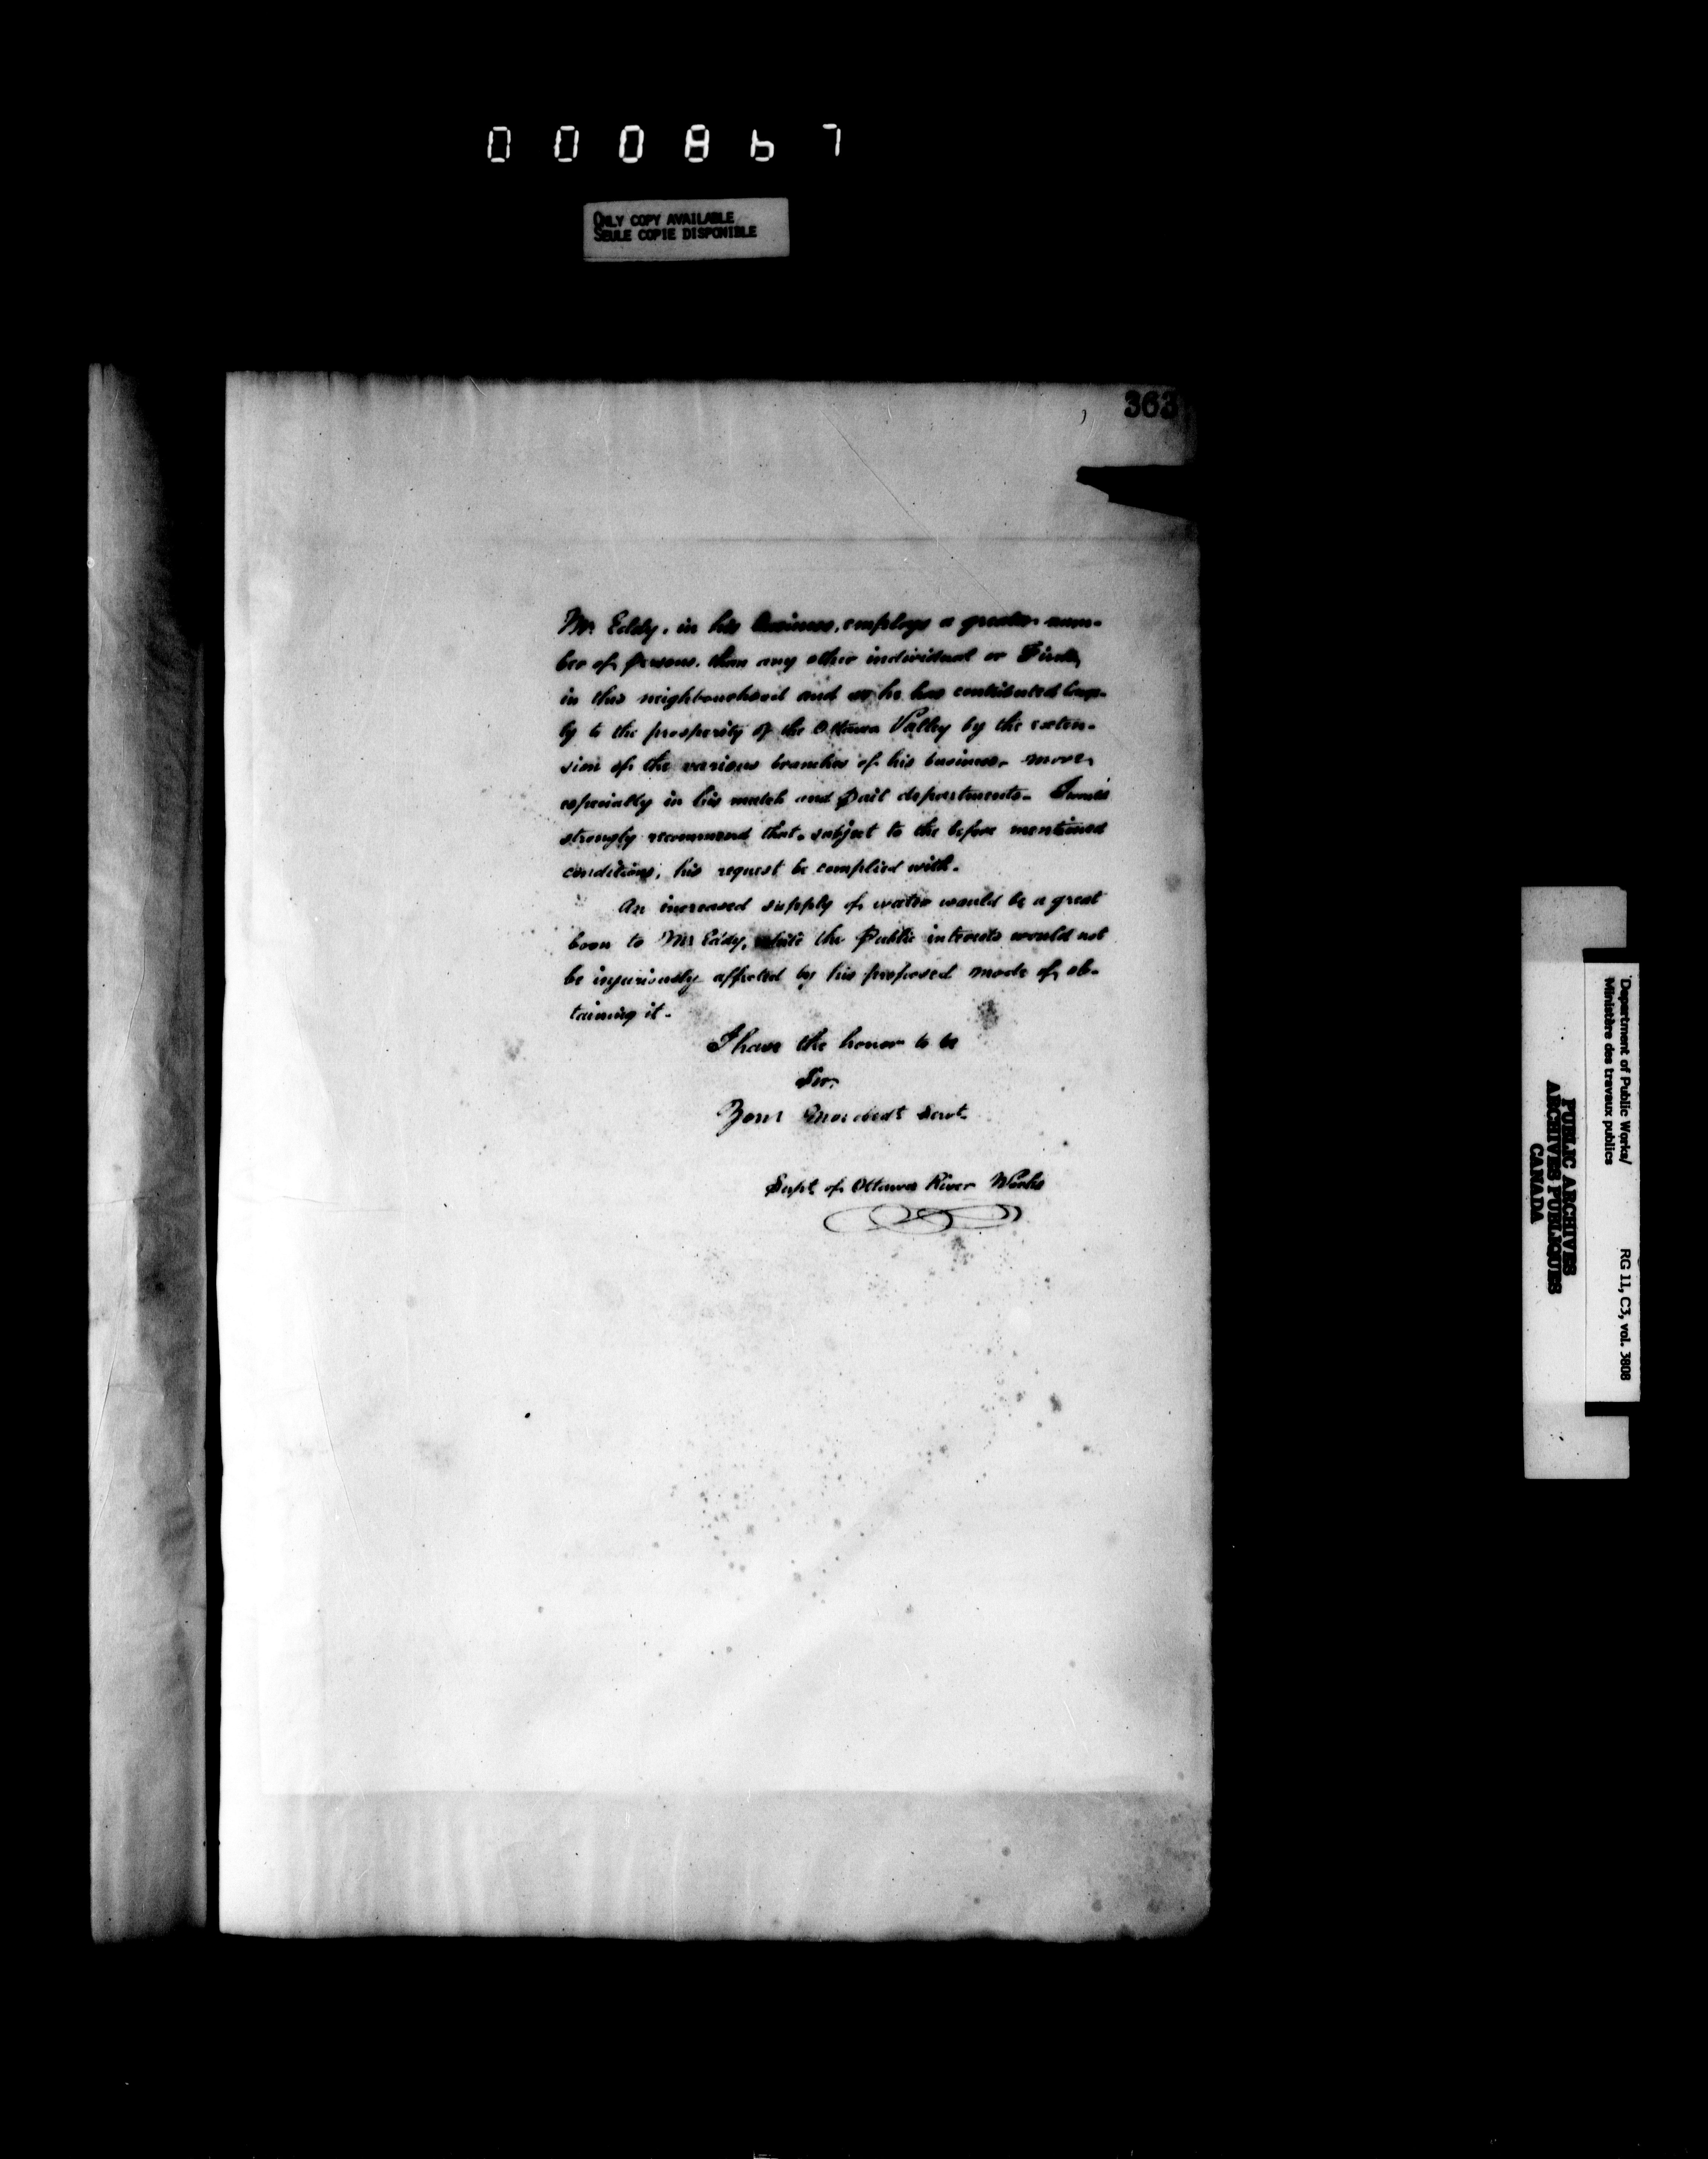 000867
ONLY COPY AVAILABLE
SEULE COPIE DISPONIBLE
363
Mr Eddy, in his business, employs a greater num-
ber of persons, than any other individual or Firm,
in this neighbourhood and as he has contributed larg-
ly to the prosperity of the Ottawa Valley by the exten-
sion of the various branches of his business, more
especially in his match and Pail departments. I would
strongly recommend that, subject to the before mentioned
conditions, his request be complied with.
An increased supply of water would be a great
boon to Mr Eddy, while the Public interests would not
be injuriously affected by his proposed mode of ob-
taining it.
I have the honor to be
Sir,
Your obedt Servt
Supt of Ottawa River Works
Department of Public Works/
Ministère des travaux publics
RG 11, C3, vol. 3808
PUBLIC ARCHIVES
ARCHIVES PUBLIQUES
CANADA